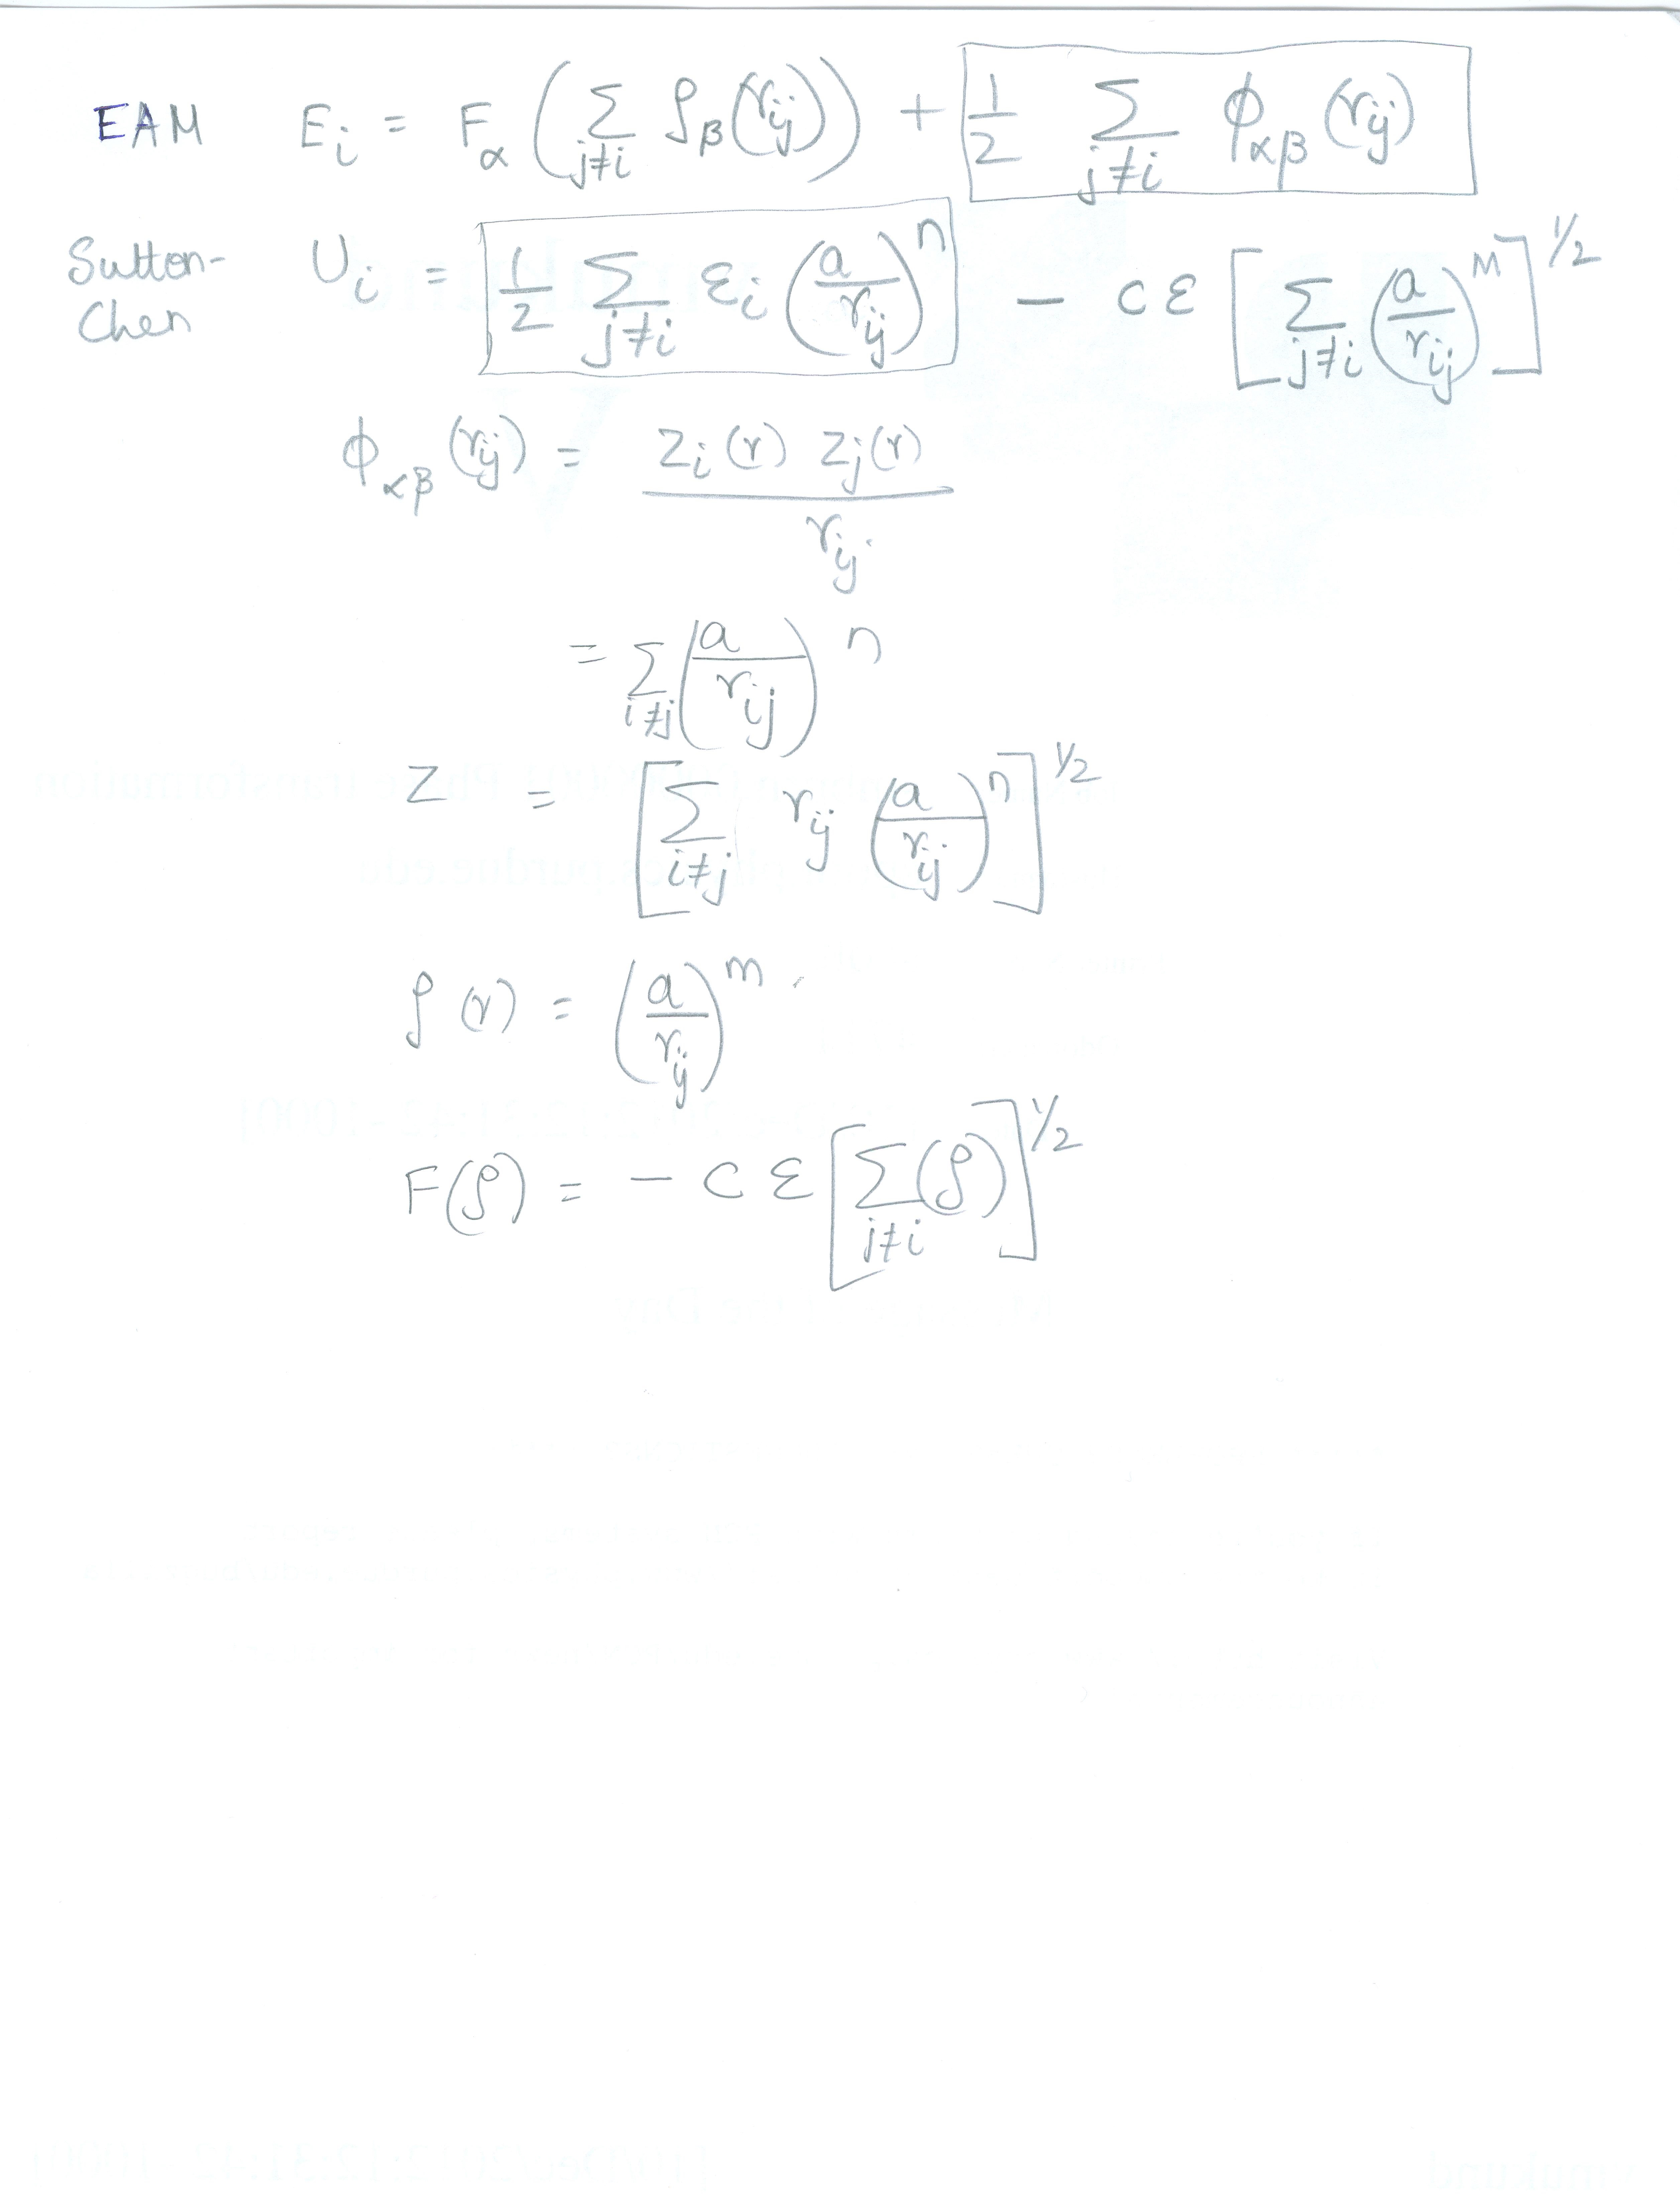 EAM E_i = F_α ( Σ_{j≠i} ρ_β(r_ij) ) + 1/2 Σ_{j≠i} ϕ_αβ (r_ij)
Sutton-Chen U_i = 1/2 Σ_{j≠i} ε_i (a/r_ij)^n - c ε [ Σ_{j≠i} (a/r_ij)^m ]^1/2
ϕ_αβ (r_ij) = Z_i(r) Z_j(r) / r_ij
= Σ_{i≠j} (a/r_ij)^n
Z = [ Σ_{i≠j} r_ij (a/r_ij)^n ]^1/2
ρ(r) = (a/r_ij)^m
F(ρ) = - c ε [ Σ_{j≠i} (ρ) ]^1/2